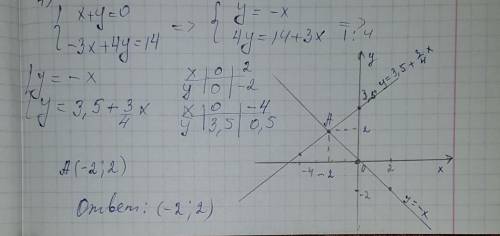 { x+y=0
-3x+4y=14
=> { y=-x
4y=14+3x
=> | : 4
{ y=-x
y=3,5+3/4x
x | 0 | 2
y | 0 | -2
x | 0 | -4
y | 3,5 | 0,5
A(-2;2)
Ответ: (-2;2)
y
3,5
y=3,5+3/4x
A
2
-4
-2
0
2
x
-2
y=-x